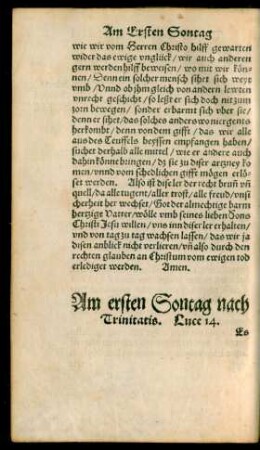 Am Ersten Sontag
wie wir vom Herren Christo hilff gewarten
wider das ewige vnglück/ wir auch anderen
gern werden hilff beweisen/ wo mit wir kön-
nen/ Denn ein solcher mensch sihet sich weyt
vmb/ Vnnd ob jhm gleich von andern lewten
vnrecht geschicht/ so lest er sich doch nit zum
zorn bewegen/ sonder erbarmt sich vber sie/
denn er sihet/ das solches anders wo nergents
herkombt/ denn von dem gifft/ das wir alle
aus des Teuffels beyssen empfangen haben/
suchet derhalb alle mittel/ wie er andere auch
dahin könne bringen/ dz sie zu diser artzney kom-
men/ vnnd vom schedlichen gifft mögen erlö-
set werden. Also ist dise ler der recht brun vñ
quell/ da alle tugent/ aller trost/ alle freud/ vnd
sicherheit her wechset/ Got der almechtige barm
hertzige Vatter/ wölle vmb seines lieben Sons
Christi Jesu willen/ vns inn diser ler erhalten/
vnd von tag zu tag wachsen lassen/ das wir ja
disen anblick nicht verlieren/ vñ also durch den
rechten glauben an Christum vom ewigen tod
erlediget werden. Amen.
Am ersten Sontag nach
Trinitatis. Luce 14.
Es